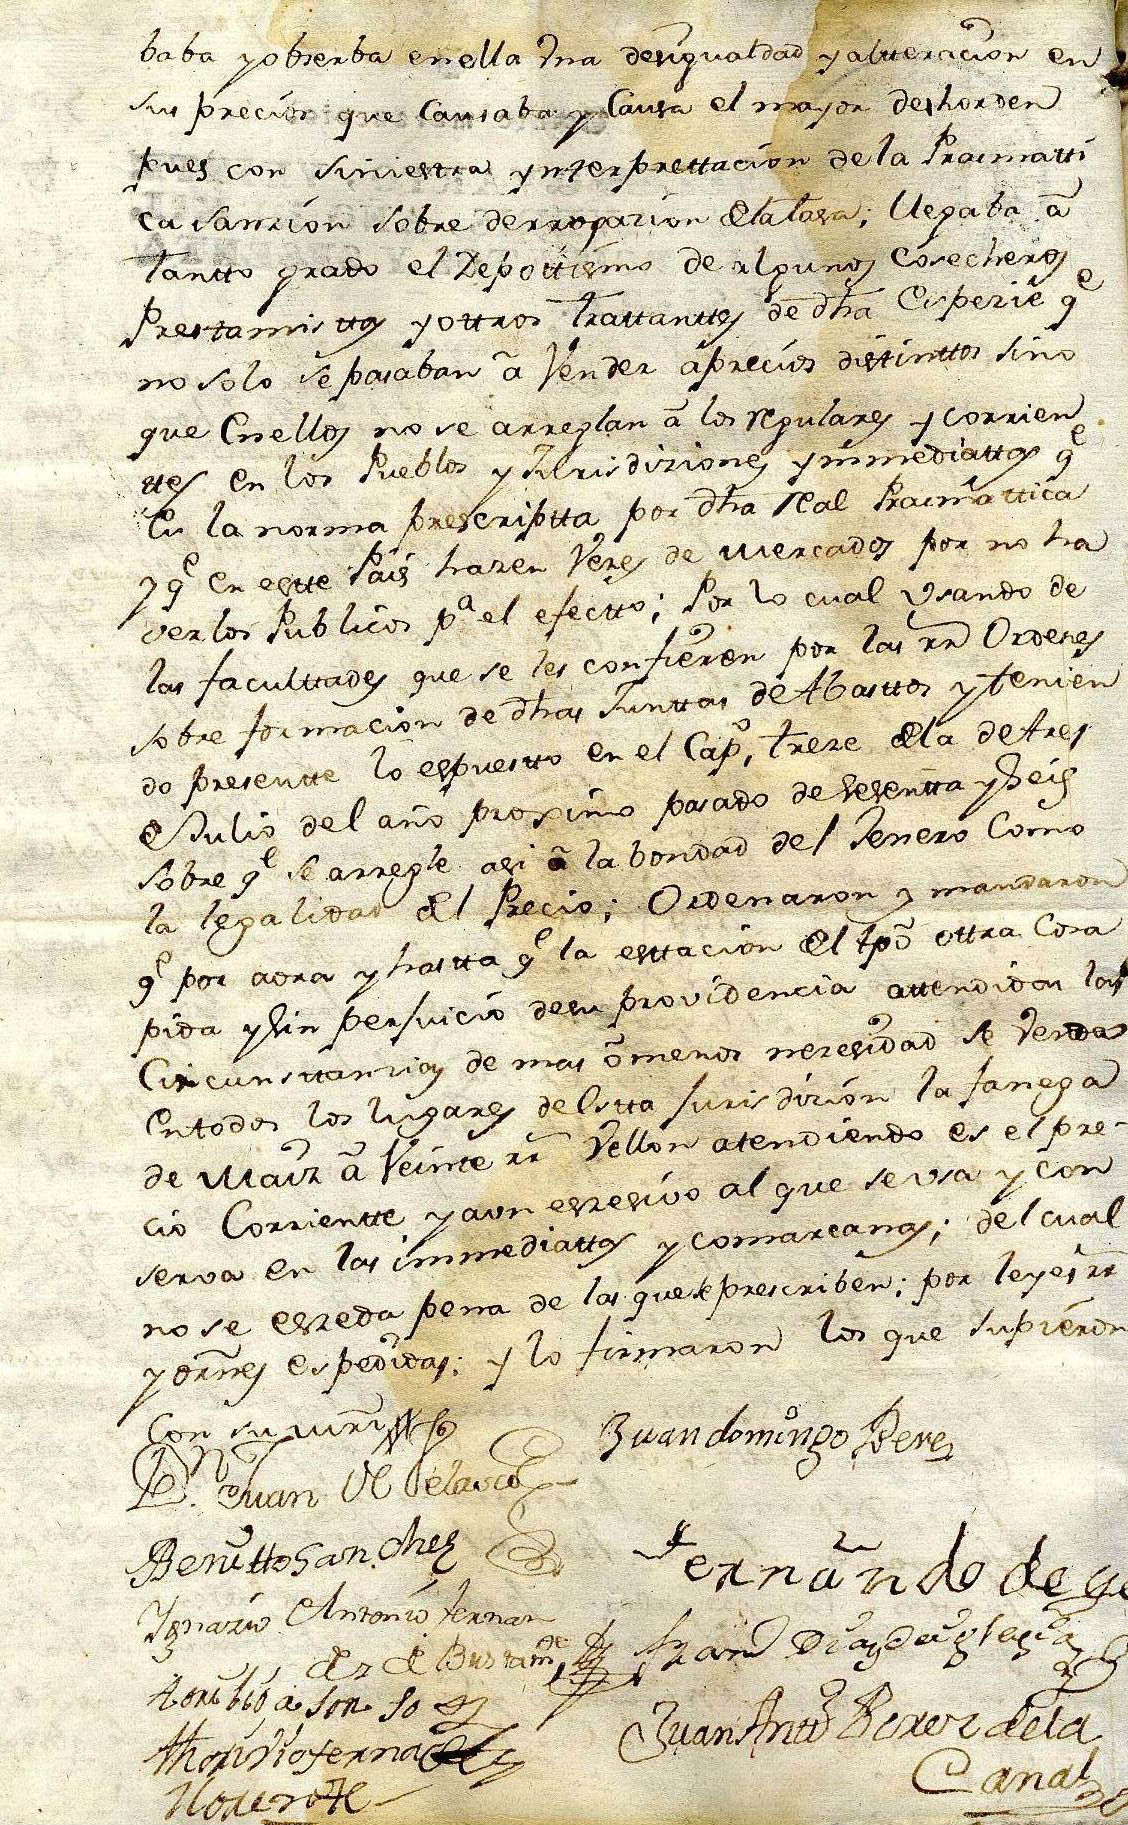 baba y obserba en ella Vna desigualdad y alteracion en
sus precios que Causaba y Causa el mayor deshorden
pues con siniestra ynterprettacion de la Pracmatti
ca sanzion sobre derrogazion de la tasa; llegaba â
tantto grado el Depottismo de algunos Cosecheros
Prestamisttas y ottros trattanttes de dha Espezie qe
no solo se pasaban â Vender a precios distinttos sino
que En ellos no se arreglan â los regulares y corrien
ttes en los Pueblos y Jurisdiziones ynmediattas qe
Es la norma prescriptta por dha Real Pracmattica
y qe en estte Pais hazen Vezes de Mercados por no ha
verlos Publicos pa el efectto; Por lo cual Vsando de
las facultades que se les confieren por las rrs Ordenes
sobre formacion de dhas Junttas de Abasttos y tenien
do presentte lo espuestto en el Capo, treze de la de tres
de Julio del año proximo pasado de sesentta y seis
sobre qe se arregle asi â la bondad del Jenero Como
la legalidad del Precio; Ordenaron y mandaron
qe por aora y hastta qe la esttacion del tpo ottra Cosa
pida y sin perjuicio de su providencia attendidas las
Circunsttanzias de mas ô menos nezesidad se venda
En todos los lugares de Estta Jurisdizion la fanega
de Maiz â Veinte rrs Vellon atendiendo es el pre-
cio Corrientte y aun eszesivo al que se usa y con
serva en las immediattas y comarcanas; del cual
no se eszeda pena de las que se prescriben; por leyes rrs
y ornes espedidas; y lo firmaron los que supieron
Con su mrd
Juan domingo Perez
Dn. Juan de Velasco
Benitto Sanchez
Fernando de
Ygnazio Antonio Fernan
dez de Bustamte
Fran Diaz de Yglesia
toribio alonso
Juan Antto Perez de la
Canal
thoribio fernadez